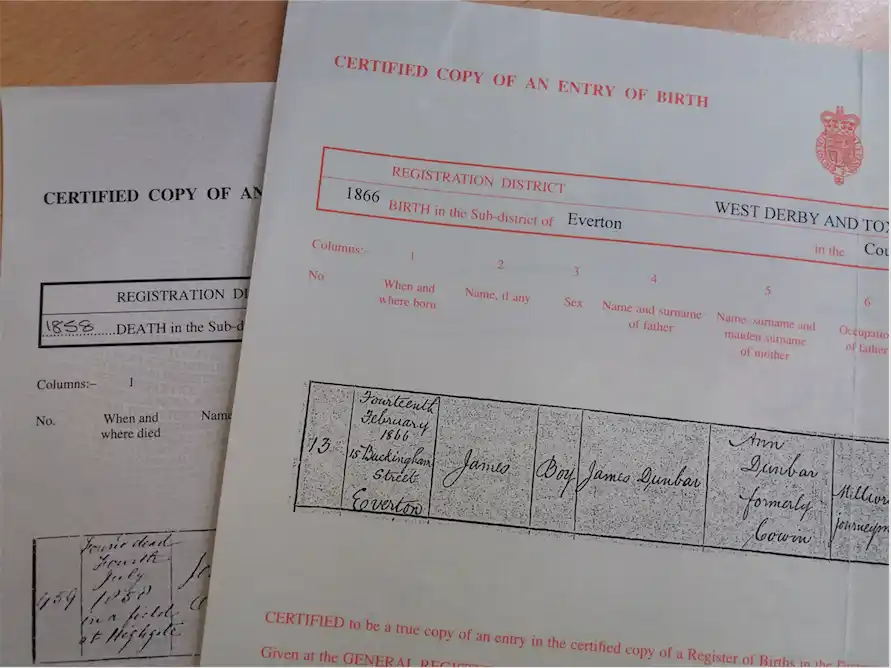 CERTIFIED COPY OF AN ENTRY OF BIRTH
REGISTRATION DISTRICT
WEST DERBY AND TOX
1866 BIRTH in the Sub-district of Everton
in the Cou
Columns:- 1 2 3 4 5 6
No When and where born
Name, if any
Sex
Name and surname of father
Name, surname and maiden surname of mother
Occupatio
of father
13
Fourteenth
February
1866
15 Buckingham
Street
Everton
James
Boy
James Dunbar
Ann
Dunbar
formerly
Cowin
journeym
CERTIFIED to be a true copy of an entry in the certified copy of a Register of Births in the D
Given at the GENERAL REGIST
CERTIFIED COPY OF AN
REGISTRATION DI
1858 DEATH in the Sub-d
Columns:– 1
No. When and where died
Name
459
Found dead
Fourth
July
1858
in a field
at Highgate